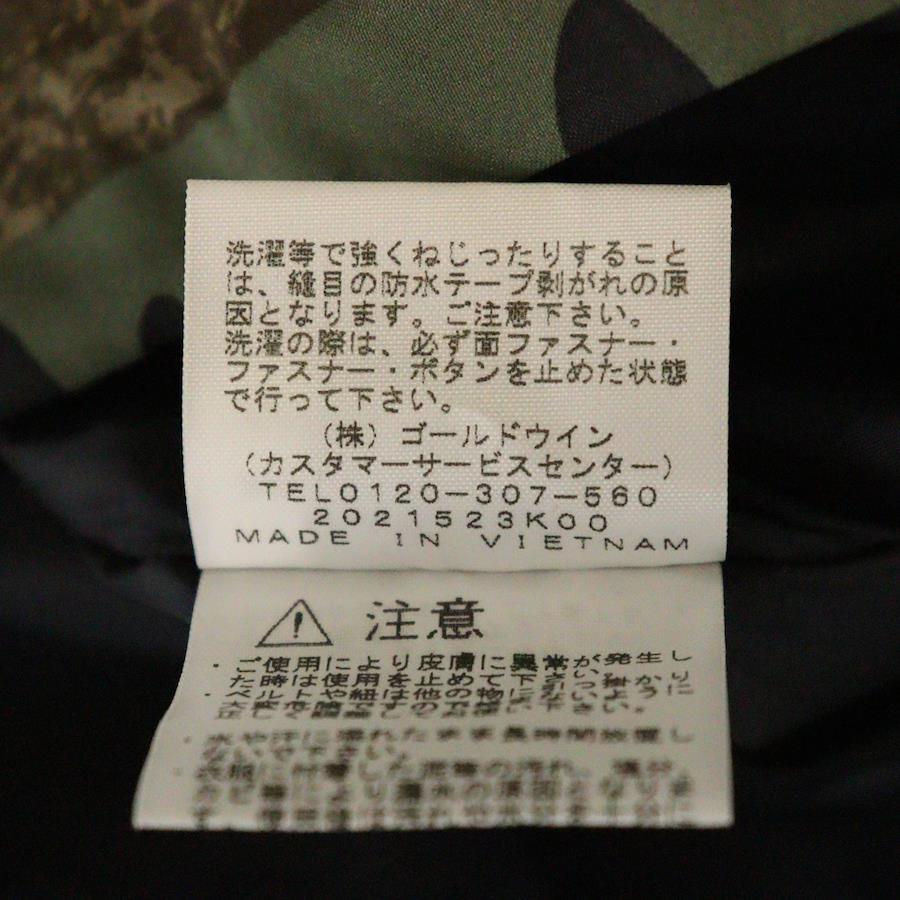 洗濯等で強くねじったりすること
は、縫目の防水テープ剥がれの原
因となります。ご注意下さい。
洗濯の際は、必ず面ファスナー・
ファスナー・ボタンを止めた状態
で行って下さい。
（株）ゴールドウイン
（カスタマーサービスセンター）
TEL0120-307-560
2021523K00
MADE IN VIETNAM
注意
・ご使用により皮膚に異常が発生し
た時は使用を止めて下さい。
・ベルトや紐は他の物に
大変危険ですので
・水や汗に濡れたまま長時間放置し
ないで下さい。
・衣服に付着した泥等の汚れ、